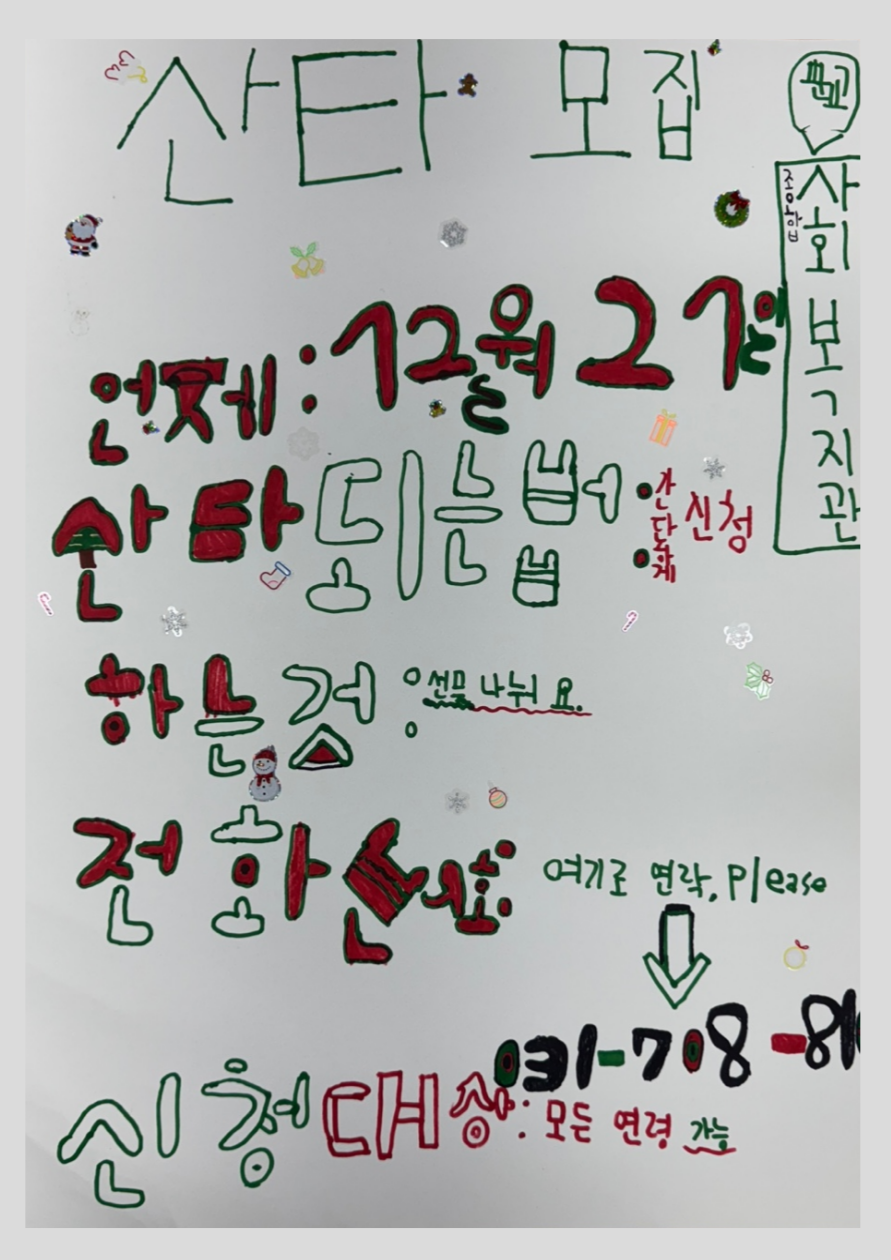 산타 모집
판교
종합
사회
복지관
언제: 12월 21일
산타 되는 법: 간단하게 신청
하는 것: 선물 나눠 요.
전화번호:
여기로 연락, please
031-708-81
신청대상: 모든 연령 가능